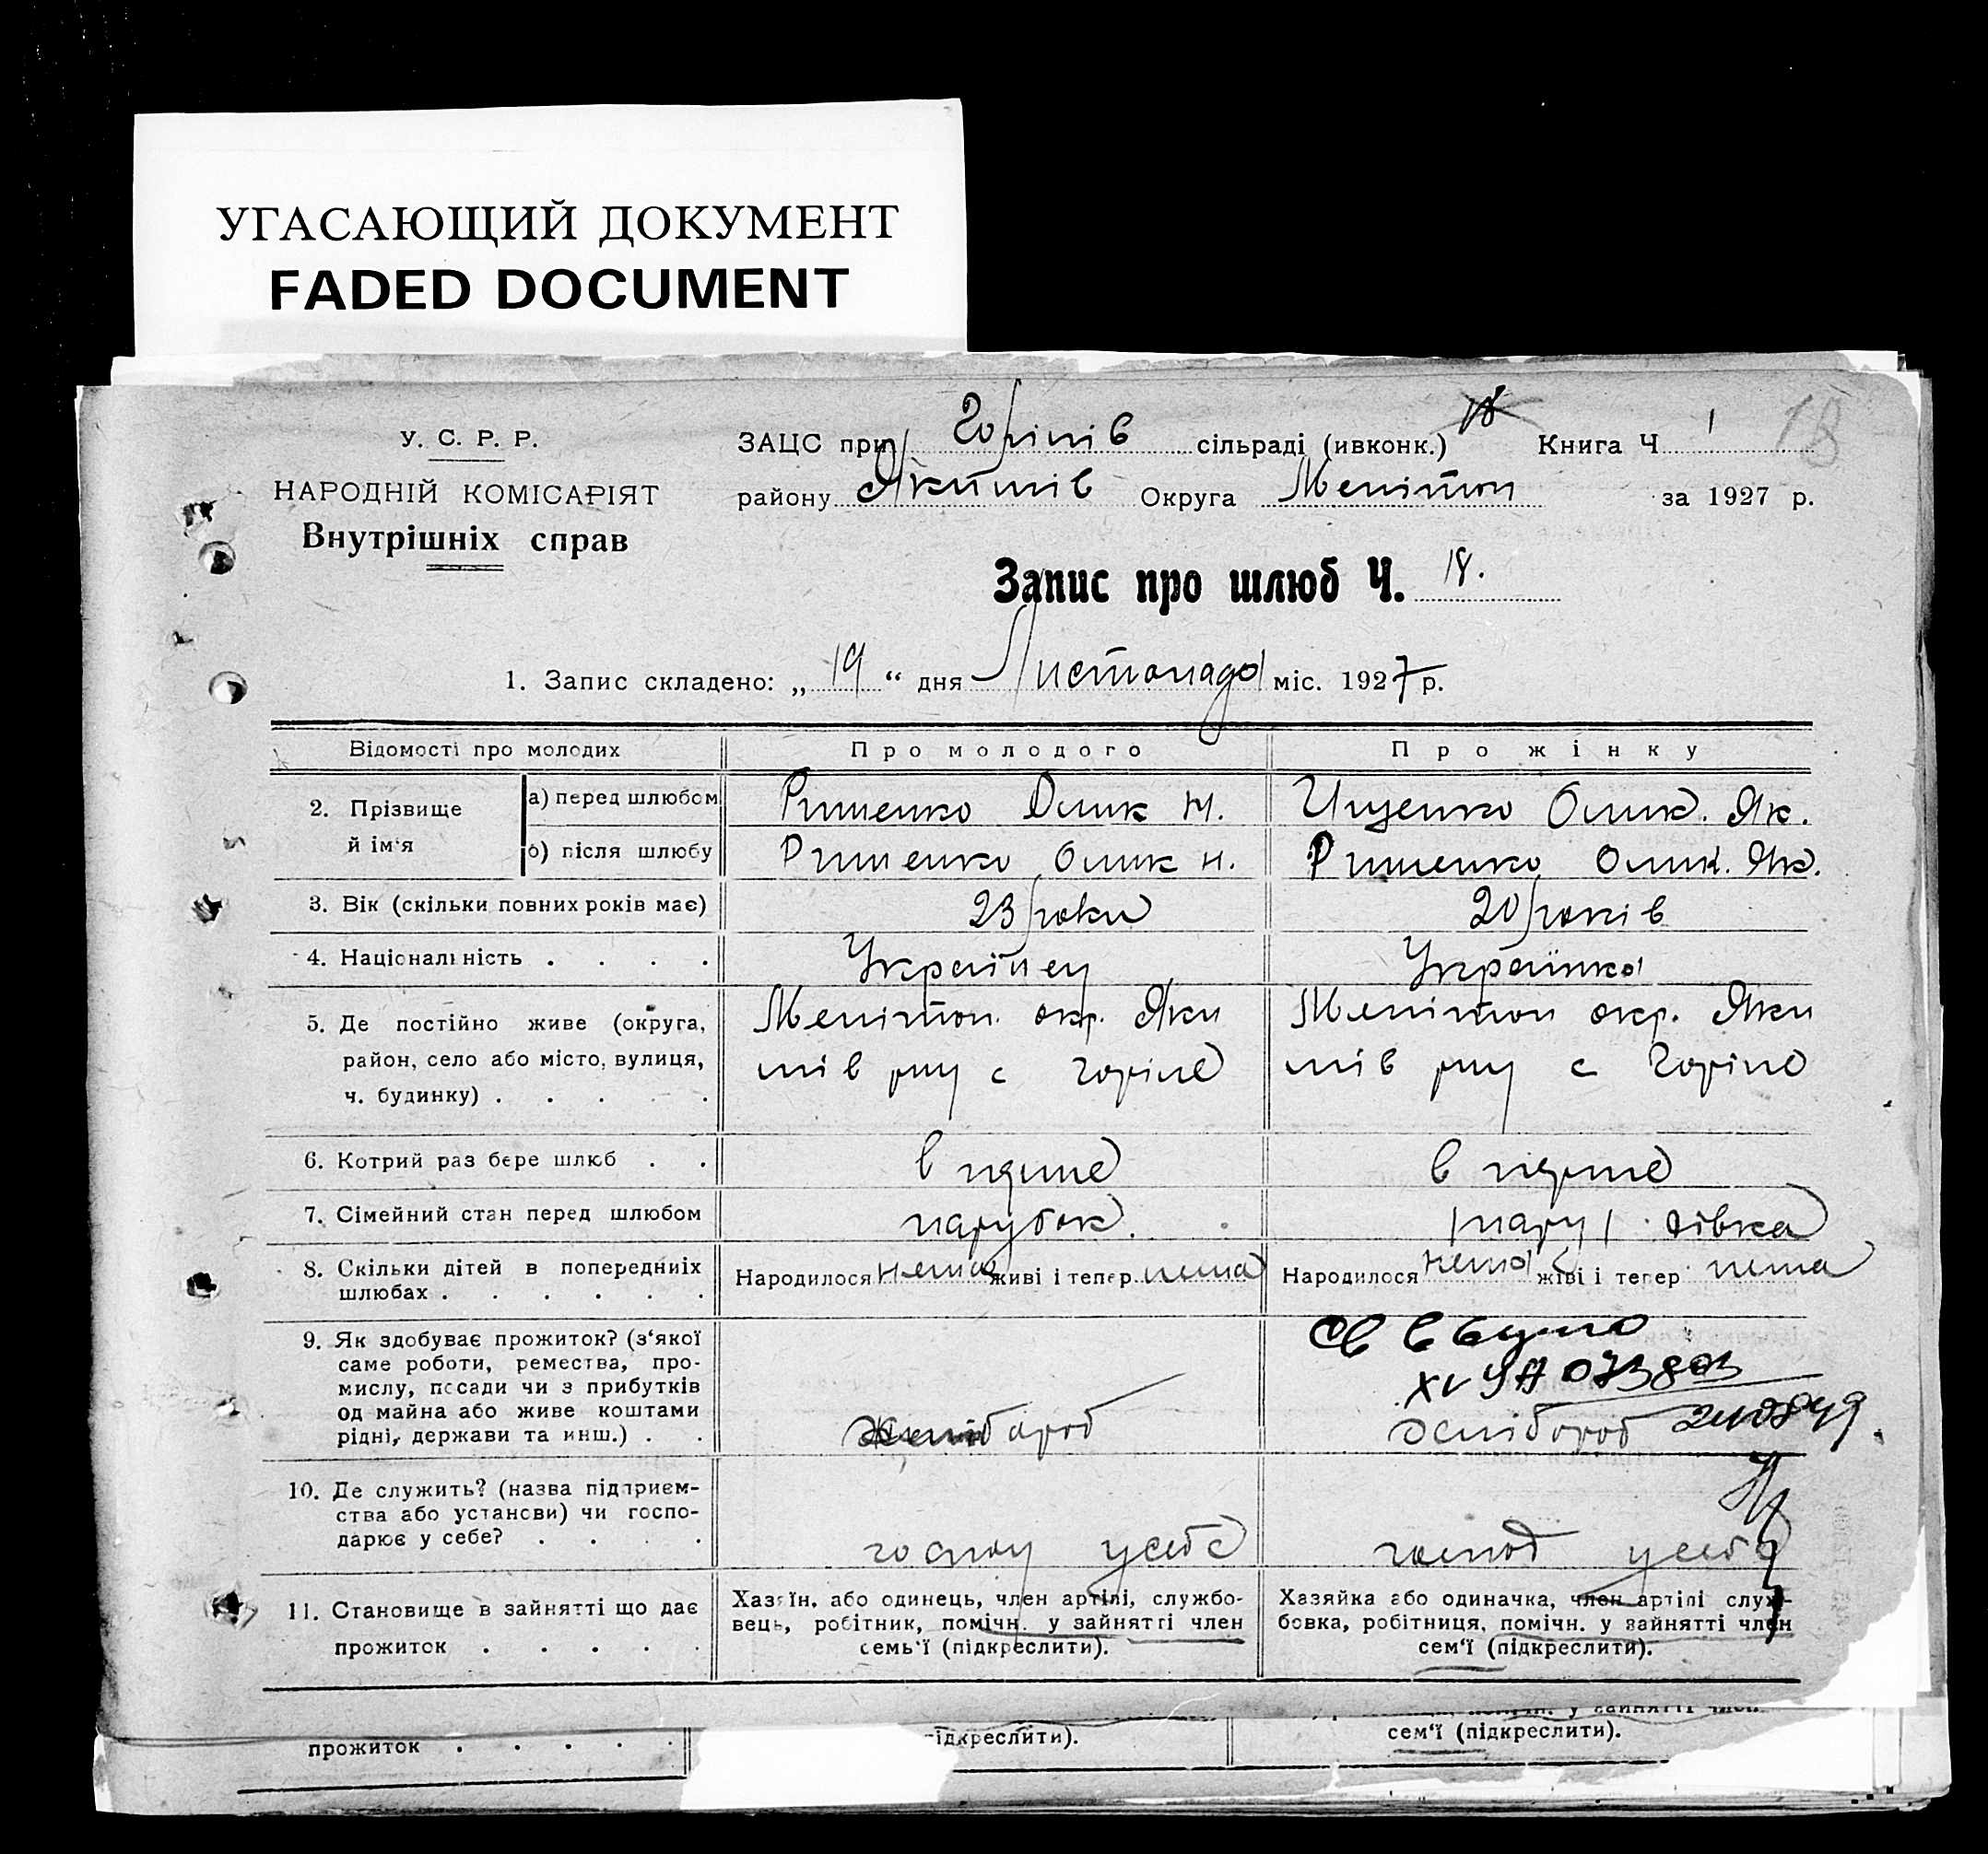 УГАСАЮЩИЙ ДОКУМЕНТ
FADED DOCUMENT
У. С. Р. Р.
НАРОДНІЙ КОМІСАРІЯТ
Внутрішніх справ
ЗАЦС при Горілів сільраді (ивконк.) 18 Книга Ч 1 18
району Якимів Округа Меліитоп за 1927 р.
Запис про шлюб Ч. 18.
1. Запис складено: „ 19 “ дня Листопада міс. 1927 р.
Відомості про молодих Про молодого Про жінку
2. Прізвище й ім‘я
а) перед шлюбом Ришенко Олик Н. Ищенко Олик. Як.
б) після шлюбу Ришенко Олик Н. Ришенко Олик. Як.
3. Вік (скільки повних років має) 23 роки 20 років
4. Національність . . . . Українец Українка
5. Де постійно живе (округа, Меліитоп. окр. Яки Меліитоп окр. Яки
район, село або місто, вулиця, мів рну с Горіле мів рну с Горіле
ч. будинку) . . . . .
6. Котрий раз бере шлюб . . в перше в перше
7. Сімейний стан перед шлюбом парубок. пару дівка
8. Скільки дітей в попередниіх Народилося нема живі і тепер нема Народилося нема живі і тепер нема
шлюбах . . . . . .
9. Як здобуває прожиток? (з‘якої
саме роботи, ремества, про-
мислу, посади чи з прибутків
од майна або живе коштами
рідні, держави та инш.) . .
Св видано
XV УА 073803
хлібороб 240849.
10. Де служить? (назва підприєм-
ства або установи) чи госпо-
дарює у себе? . . . . господ усебе господ усебе
11. Становище в зайнятті що дає
прожиток . . . . .
Хазяїн. або одинець, член артілі, службо-
вець, робітник, помічн. у зайнятті член
семь‘ї (підкреслити).
Хазяйка або одиначка, член артілі служ-
бовка, робітниця, помічн. у зайнятті член
сем‘ї (підкреслити).
прожиток . . . . . ідкреслити). сем‘ї (підкреслити).